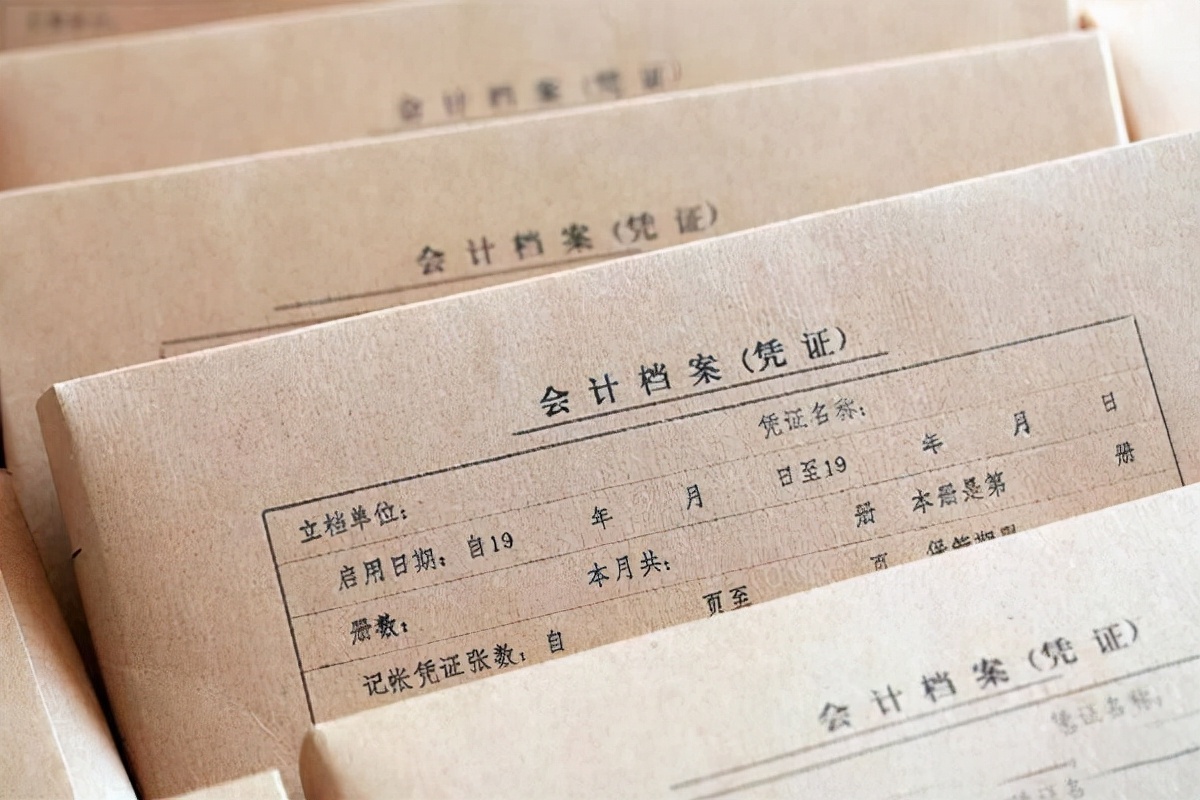 会计档案(凭证)
会计档案(凭证)
会计档案(凭证)
立档单位: 凭证名称:
启用日期: 自19 年 月 日至19 年 月 日
册数: 本月共: 册 本册是第 册
记帐凭证张数: 自 页至 页 保管期限
会计档案(凭证)
凭证名称:
凭证名